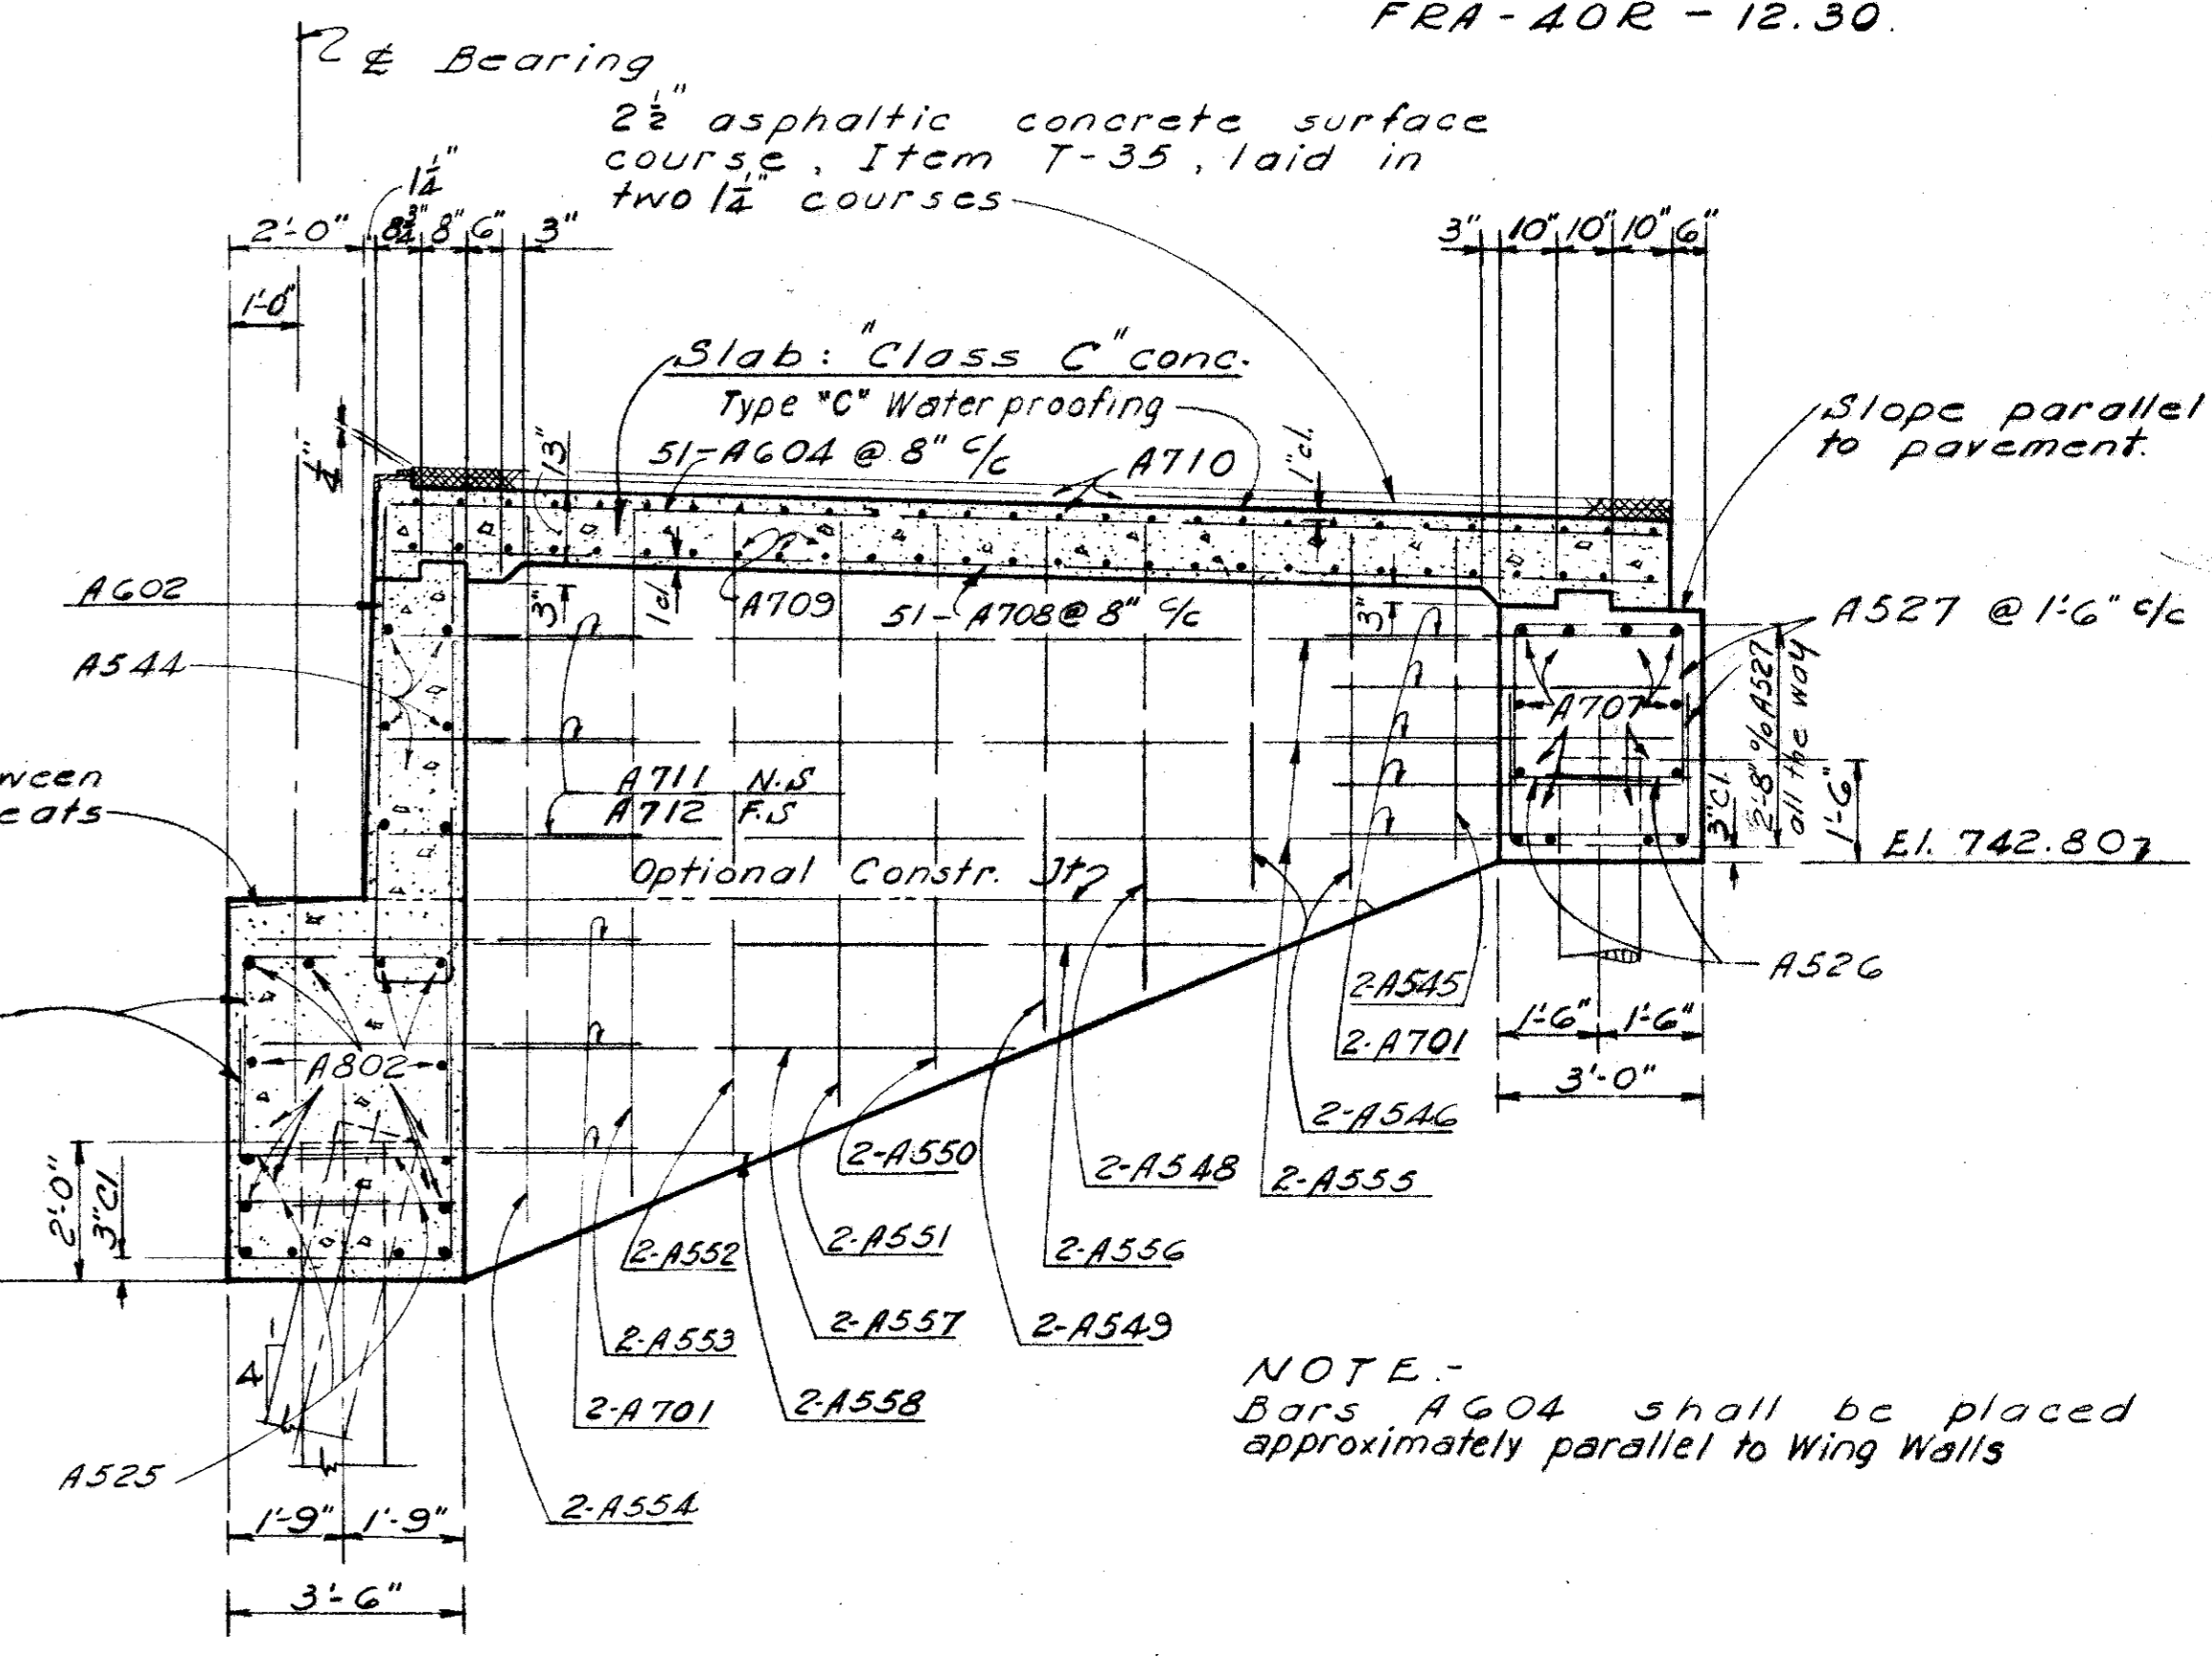 FRA-40R-12.30.
℄ Bearing
2½" asphaltic concrete surface
course, Item T-35, laid in
two 1¼" courses
1¼"
2'-0"
8¾"
8"
6"
3"
3"
10"
10"
10"
6"
1'-0"
Slab: "Class C" conc.
Type "C" Waterproofing
51-A604 @ 8" c/c
A710
1" cl.
13"
¼"
Slope parallel
to pavement.
A602
3"
1 cl.
A709
51-A708 @ 8" c/c
3"
A527 @ 1'-6" c/c
A544
A707
2'-8" % A527
all the way
A711 N.S
A712 F.S
3" Cl.
1'-6"
El. 742.80
Optional Constr. Jt
ween
eats
A526
2-A545
2-A701
1'-6"
1'-6"
3'-0"
A802
2-A546
2-A550
2-A548
2-A555
2'-0"
3" Cl
2-A552
2-A551
2-A556
2-A553
2-A557
2-A549
4
1
2-A701
2-A558
NOTE:-
Bars A604 shall be placed
approximately parallel to Wing Walls
A525
2-A554
1'-9"
1'-9"
3'-6"